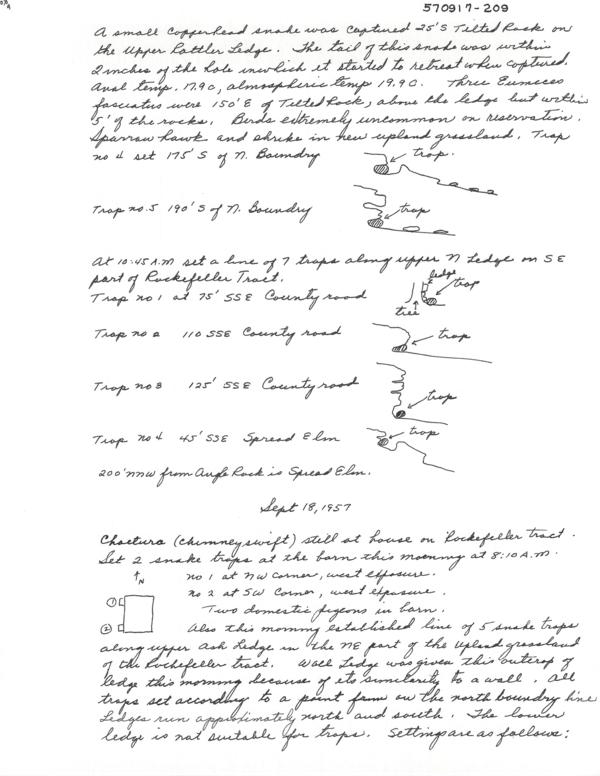 570917-209
A small copperhead snake was captured 25'S Tilted Rock on
the Upper Rattler Ledge. The tail of this snake was within
2 inches of the hole in which it started to retreat when captured.
Anal temp. 17.9 C, atmospheric temp 19.9 C. Three Eumeces
fasciatus were 150' E of Tilted Rock, above the ledge but within
5' of the rocks. Birds extremely uncommon on reservation.
Sparrow hawk and shrike in new upland grassland. Trap
no 4 set 175' S of N. Boundry
trap.
Trap no. 5 190' S of N. Boundry
trap
At 10:45 A.M set a line of 7 traps along upper N Ledge on SE
part of Rockefeller Tract.
ledge
Trap no 1 at 75' SSE County road
trap
tree
Trap no 2 110 SSE County road
trap
Trap no 3 125' SSE County road
trap
Trap no 4 45' SSE Spread Elm
trap
200' NNW from Angle Rock is Spread Elm.
Sept 18, 1957
Chaetura (chimney swift) still at house on Rockefeller tract.
Set 2 snake traps at the barn this morning at 8:10 A.M.
N
no 1 at NW corner, west exposure.
1
no 2 at SW corner, west exposure.
Two domestic pigeons in barn.
2
Also this morning established line of 5 snake traps
along upper Ash Ledge in the NE part of the upland grassland
of the Rockefeller tract. Wall Ledge was given this outcrop of
ledge this morning because of its similarity to a wall. All
traps set according to a point from on the north boundry line
Ledges run approximately north and south. The lower
ledge is not suitable for traps. Settings are as follows: